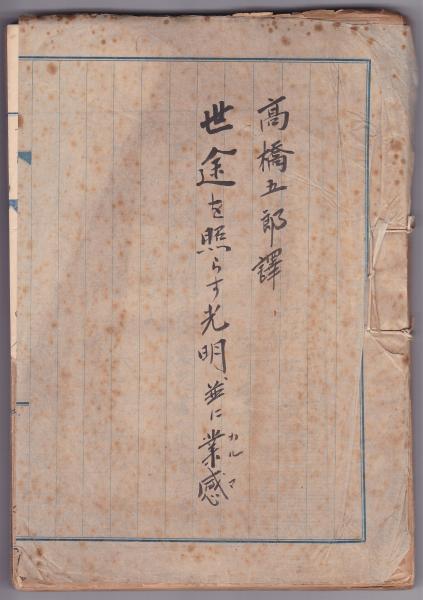 高橋五郎譯
世途を照らす光明並に業感
カルマ